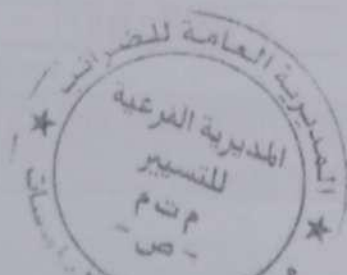 المديرية العامة للضرائب
المديرية الفرعية
للتسيير
م ت م
- ص -